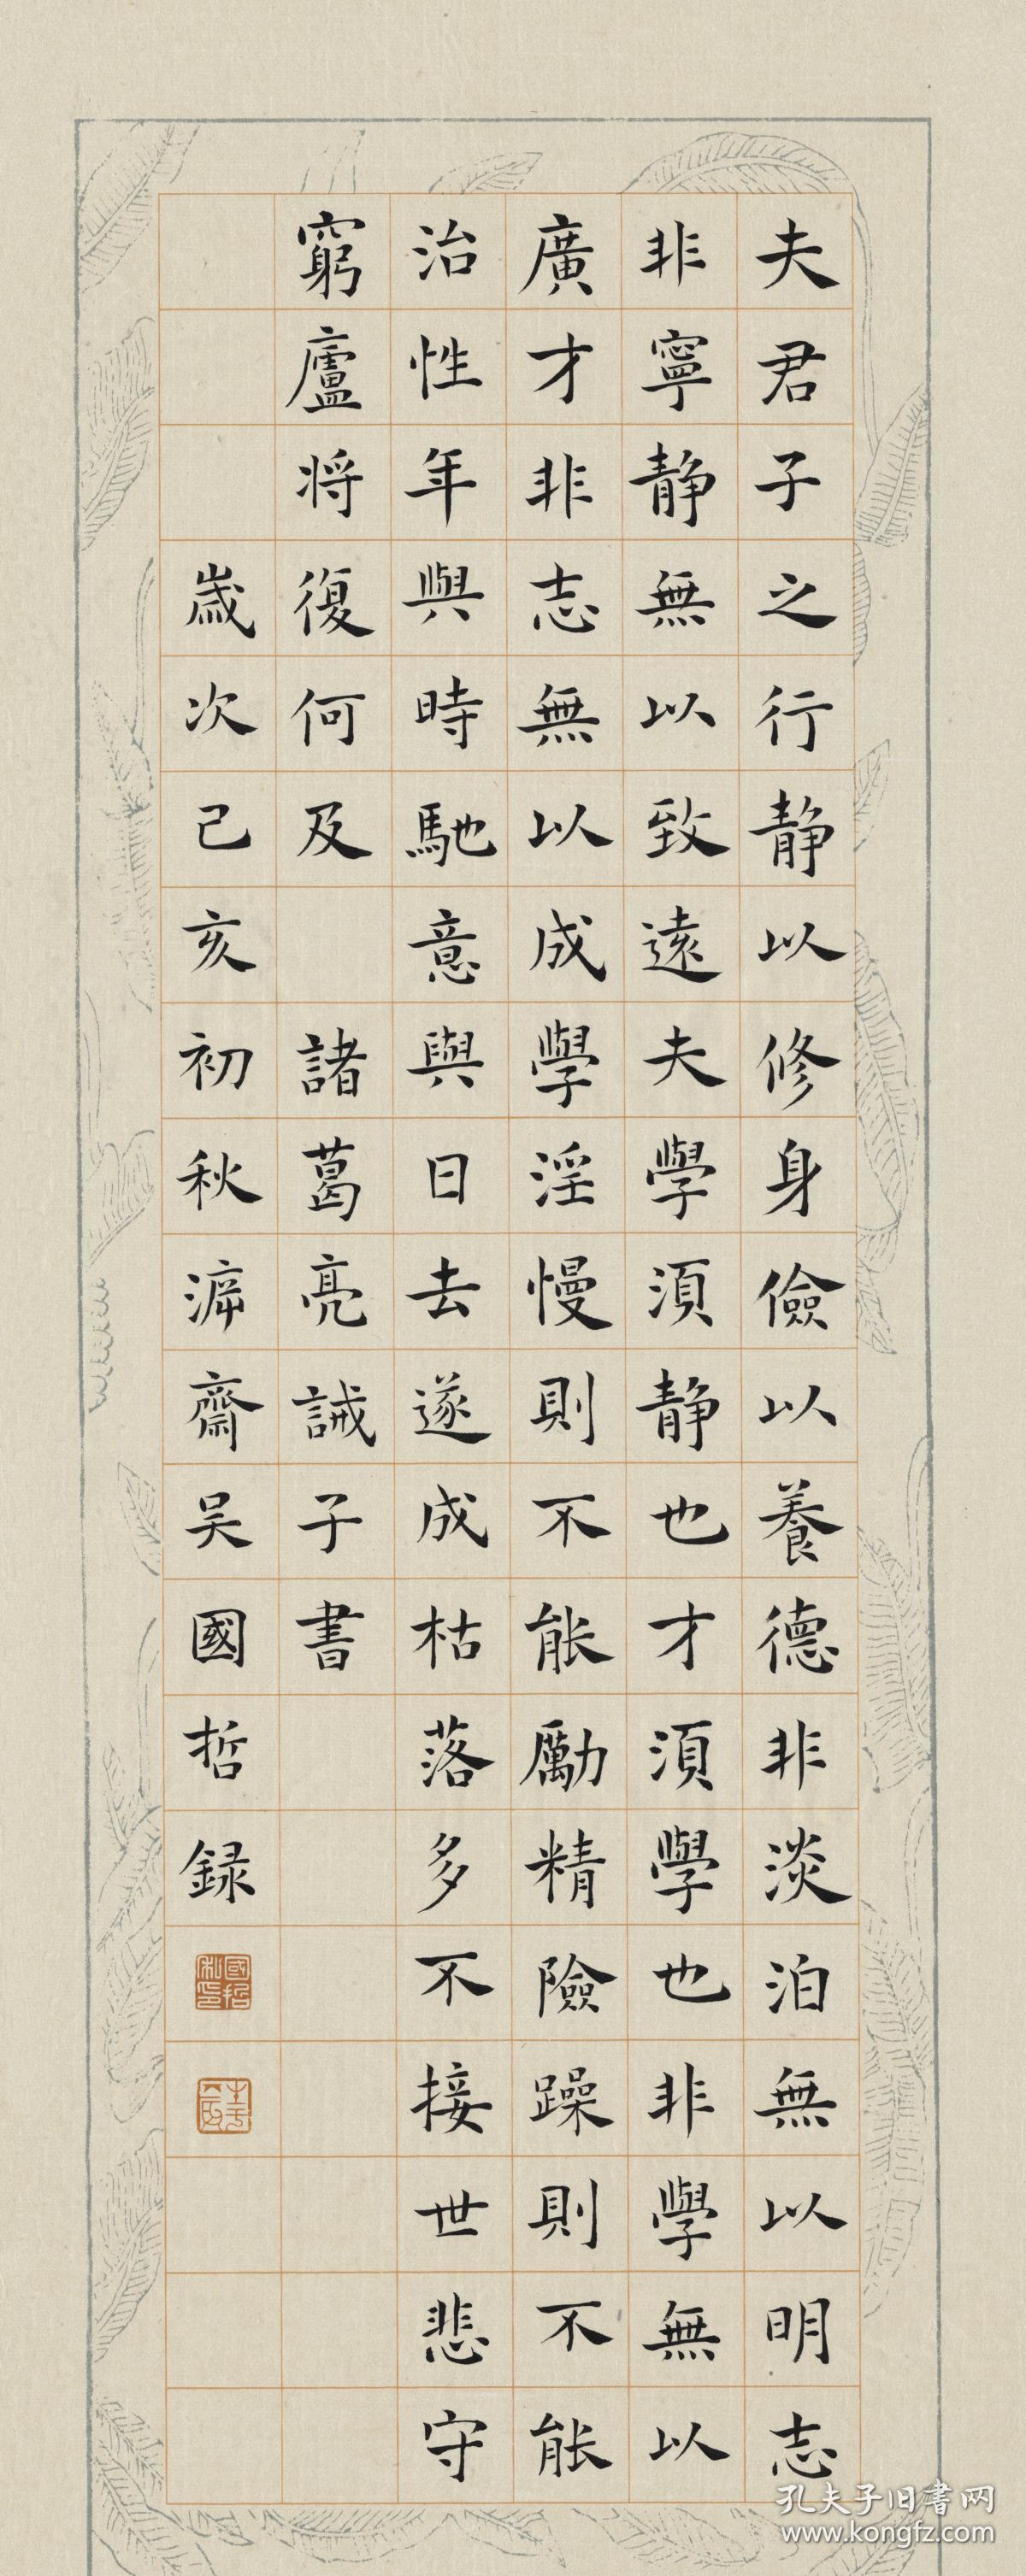 夫君子之行静以修身儉以養德非淡泊無以明志
非寧静無以致遠夫學須静也才須學也非學無以
廣才非志無以成學淫慢則不能勵精險躁則不能
治性年與時馳意與日去遂成枯落多不接世悲守
窮廬将復何及 諸葛亮誡子書
歲次己亥初秋齋吴國哲録
國哲私印
孔夫子旧書网
www.kongfz.com